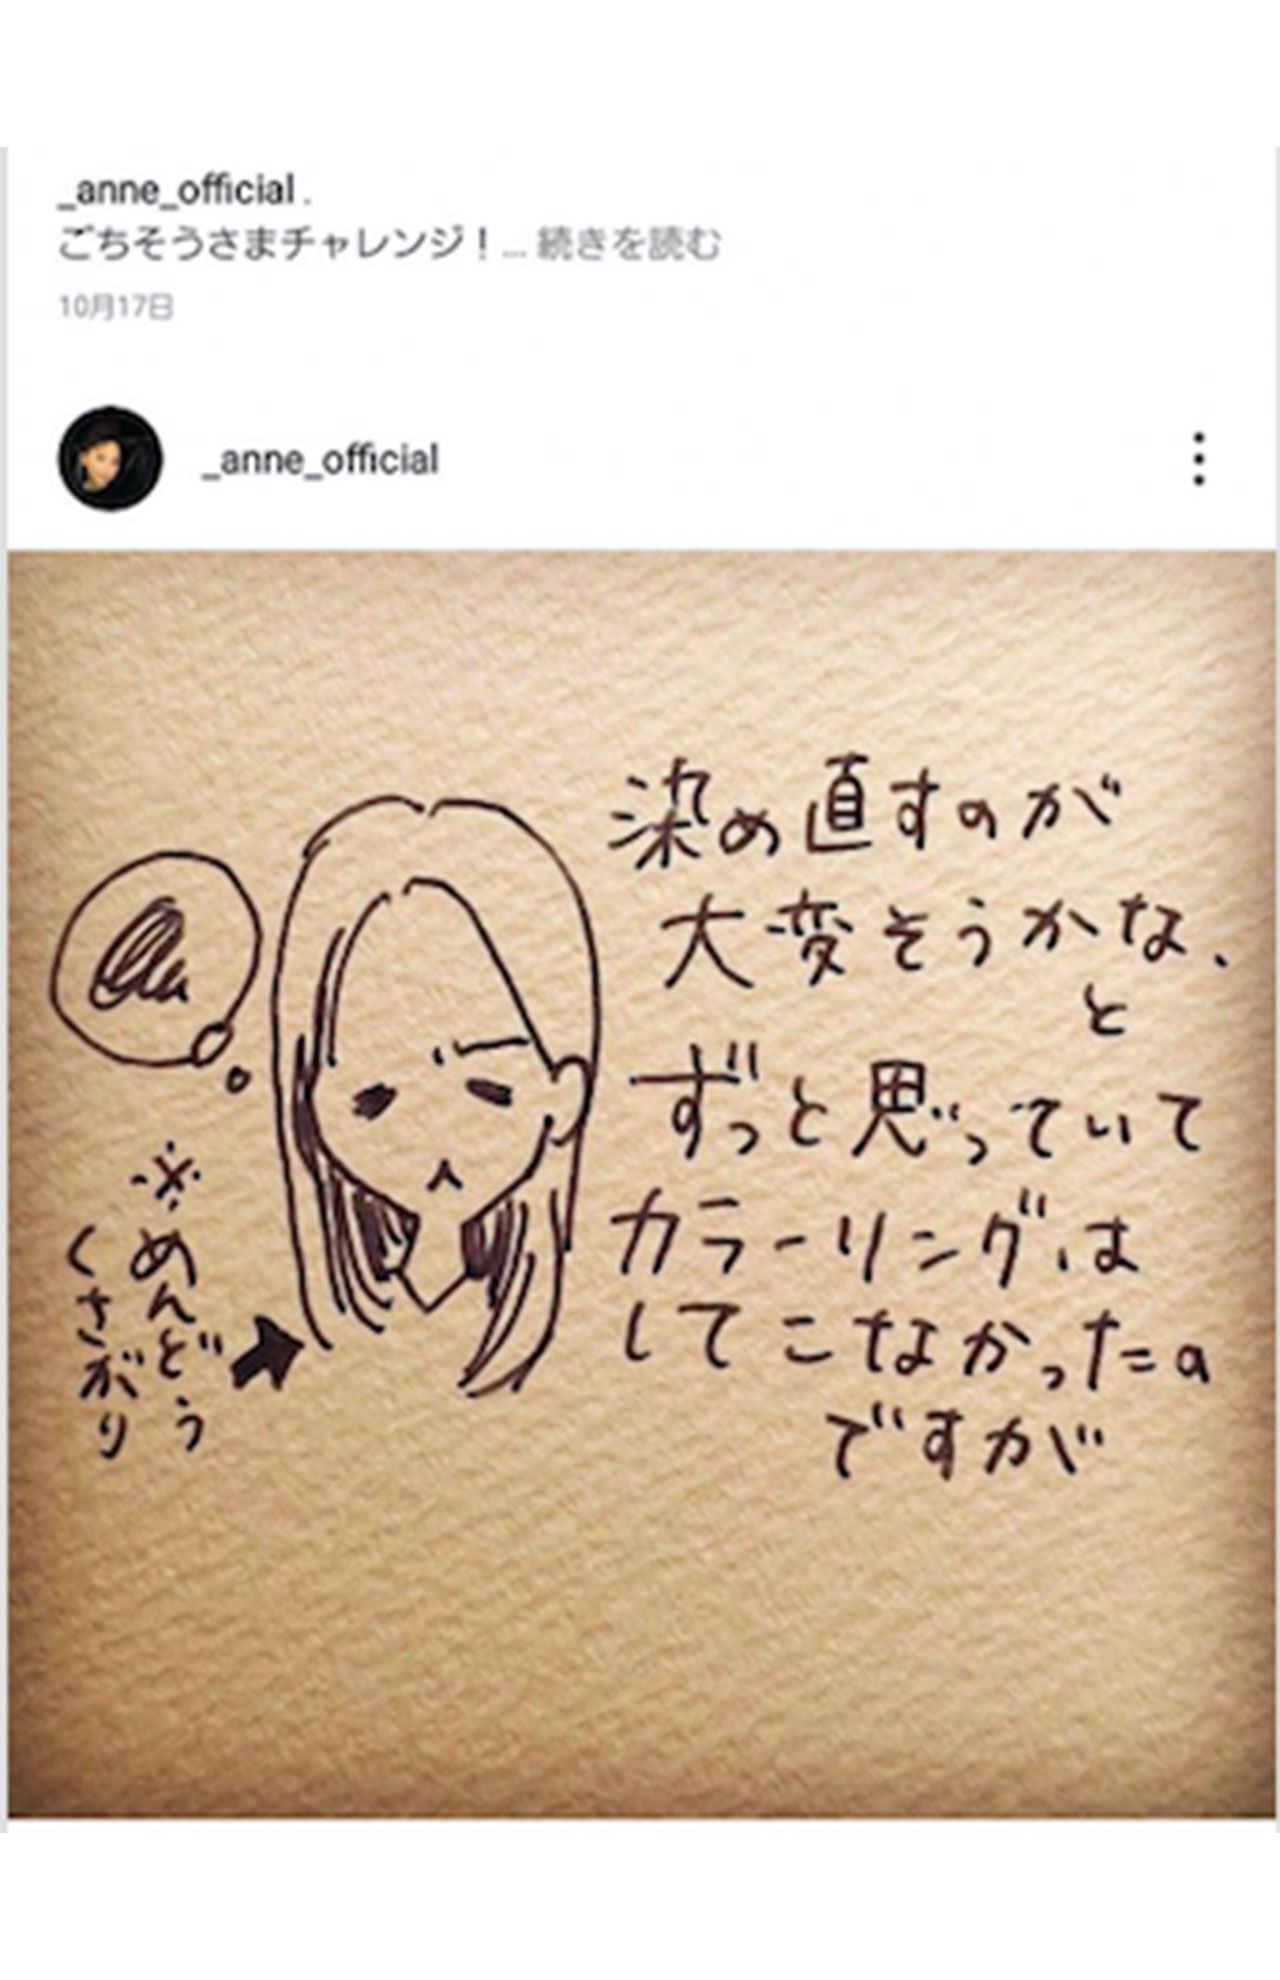 _anne_official .
ごちそうさまチャレンジ！... 続きを読む
10月17日
_anne_official
染め直すのが
大変そうかな、
と
ずっと思っていて
カラーリングは
してこなかったの
ですが
※めんどう
くさがり